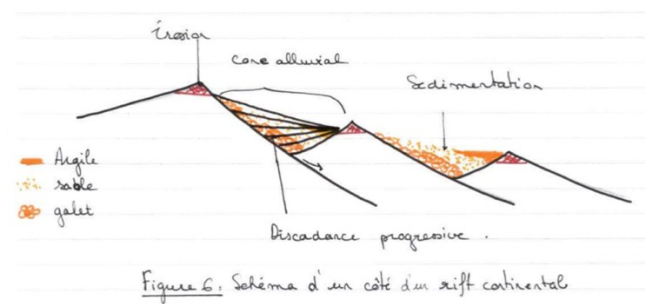 Érosion
cone alluvial
Sédimentation
Argile
sable
galet
Discadance progressive.
Figure 6: Schéma d'un côté d'un rift continental